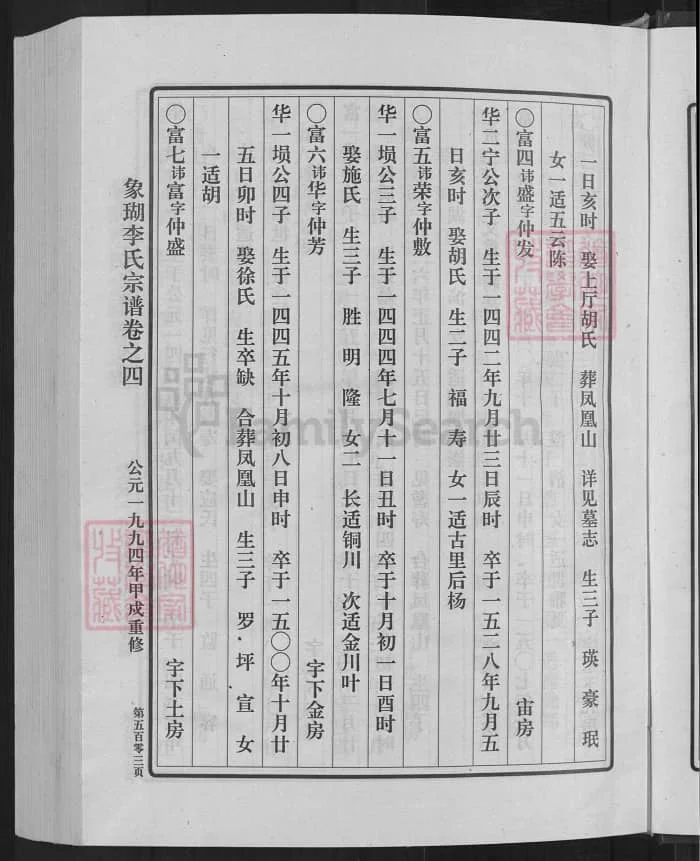 一日亥时 娶上厅胡氏 葬凤凰山 详见墓志 生三子 瑛 豪 珉
女一适五云陈
〇富四讳盛字仲发 宙房
华二宁公次子 生于一四四二年九月廿三日辰时 卒于一五二八年九月五
日亥时 娶胡氏 生二子 福 寿 女一适古里后杨
〇富五讳荣字仲敷
华一埙公三子 生于一四四四年七月十一日丑时 卒于十月初一日酉时
娶施氏 生三子 胜 明 隆 女二 长适铜川 次适金川叶
〇富六讳华字仲芳 字下金房
华一埙公四子 生于一四四五年十月初八日申时 卒于一五〇〇年十月廿
五日卯时 娶徐氏 生卒缺 合葬凤凰山 生三子 罗 坪 宣 女
一适胡
〇富七讳富字仲盛 字下土房
象瑚李氏宗谱卷之四 公元一九九四年甲戌重修 第五百零三页
FamilySearch